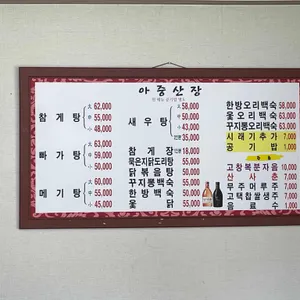 아중산장
참게탕 大 62,000
中 55,000
小 48,000
빠가탕 大 63,000
中 59,000
小 50,000
메기탕 大 60,000
中 55,000
小 45,000
새우탕 大 58,000
中 50,000
小 43,000
35,000
참게장 18,000
묵은지닭도리탕 55,000
닭볶음탕 50,000
꾸지뽕백숙 55,000
한방백숙 50,000
옻닭 55,000
한방오리백숙 58,000
옻오리백숙
꾸지뽕오리백숙
시래기추가 7,000
공기밥 1,000
고창복분자음 10,000
산사춘 7,000
무주머루주 7,000
고택찹쌀생주 7,000
음료수